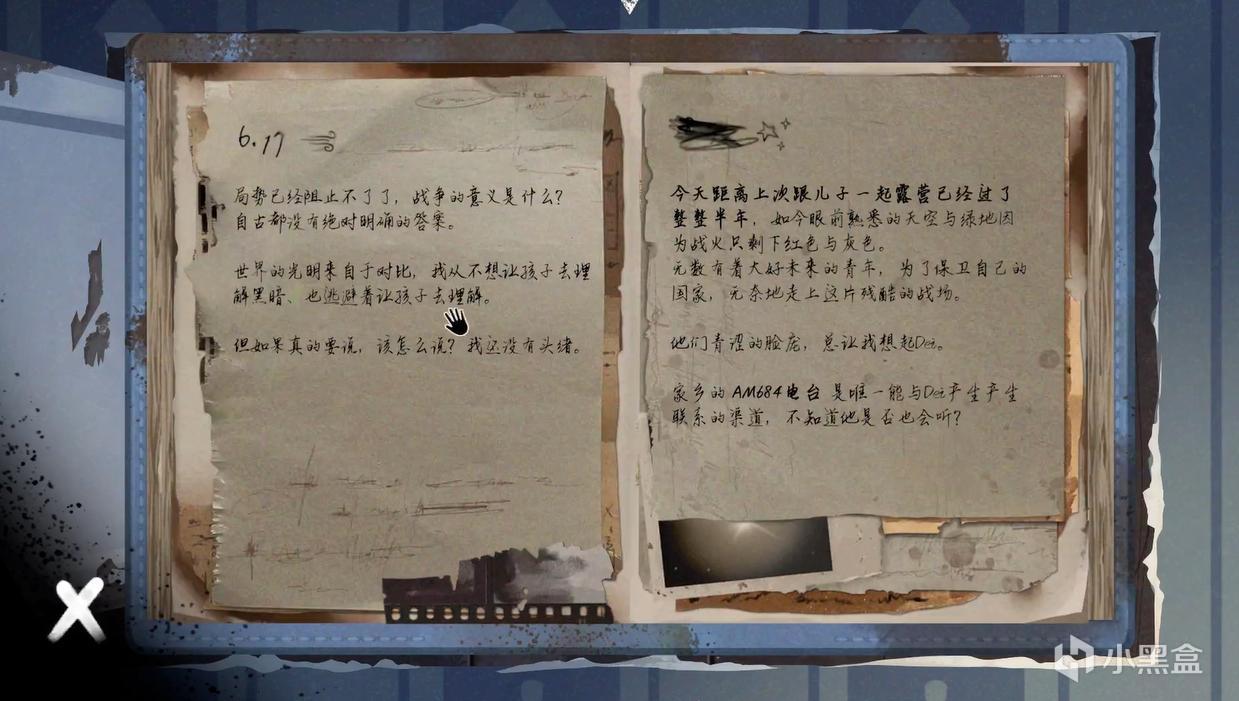 6.17
局势已经阻止不了了，战争的意义是什么？
自古都没有绝对明确的答案。
世界的光明来自于对比，我从不想让孩子去理
解黑暗、也逃避着让孩子去理解。
但如果真的要说，该怎么说？我还没有头绪。
今天距离上次跟儿子一起露营已经过了
整整半年，如今眼前熟悉的天空与绿地因
为战火只剩下红色与灰色。
无数有着大好未来的青年，为了保卫自己的
国家，无奈地走上这片残酷的战场。
他们青涩的脸庞，总让我想起Dei。
家乡的 AM684电台 是唯一能与Dei产生产生
联系的渠道，不知道他是否也会听？
小黑盒